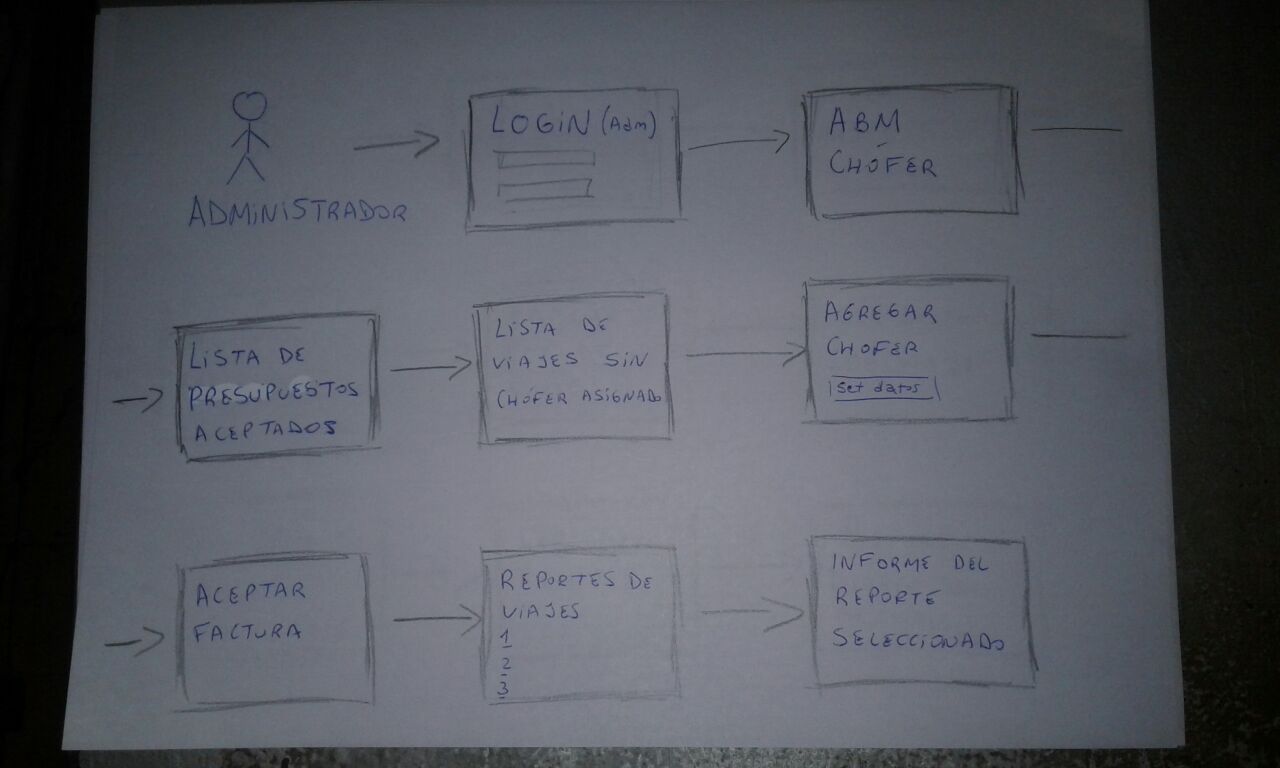 ADMINISTRADOR
LOGIN (Adm)
ABM
CHÓFER
LISTA DE
PRESUPUESTOS
ACEPTADOS
LISTA DE
VIAJES SIN
CHÓFER ASIGNADO
AGREGAR
CHOFER
Set datos
ACEPTAR
FACTURA
REPORTES DE
VIAJES
1
2
3
INFORME DEL
REPORTE
SELECCIONADO